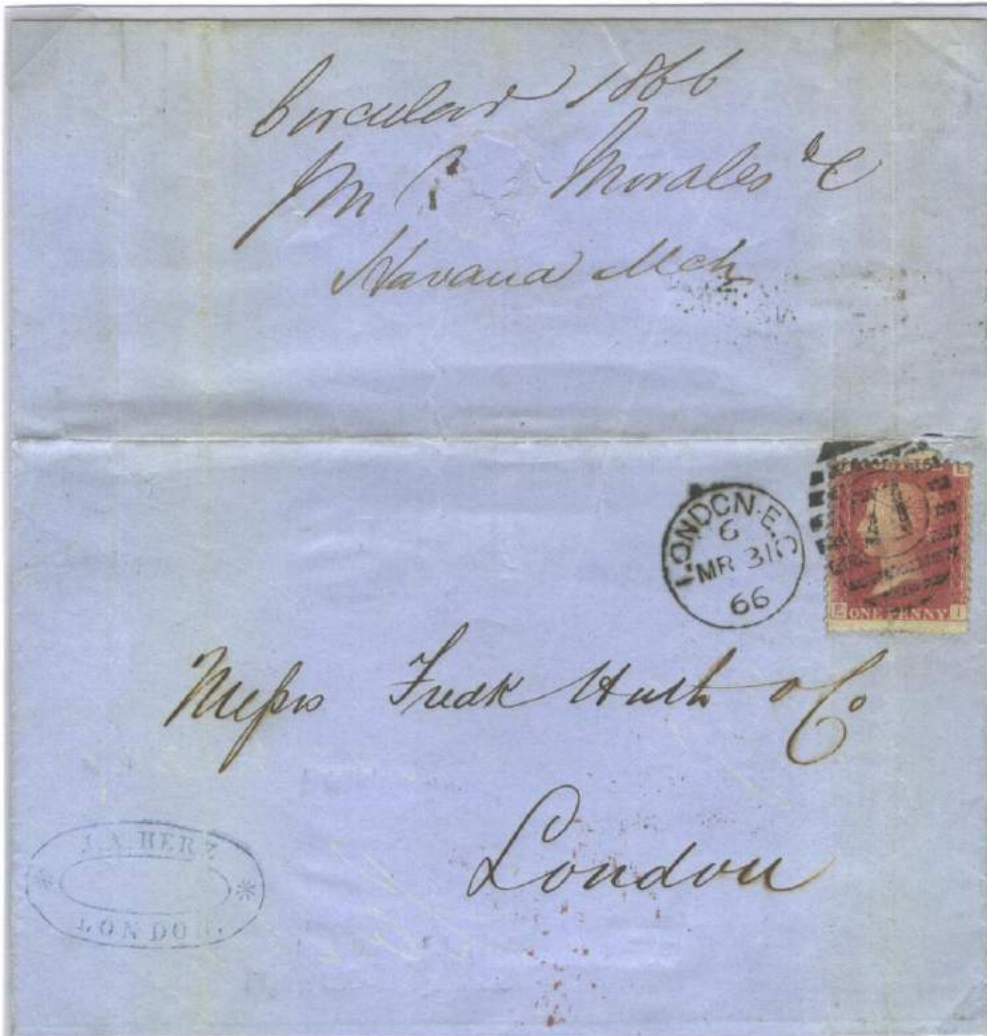 Circular 1866
Morales & C
Havana Mch
LONDON·E.C
6
MR 31
66
E I
ONE PENNY
Messrs Fredk Huth & Co
London
J.A HERZ
LONDON.